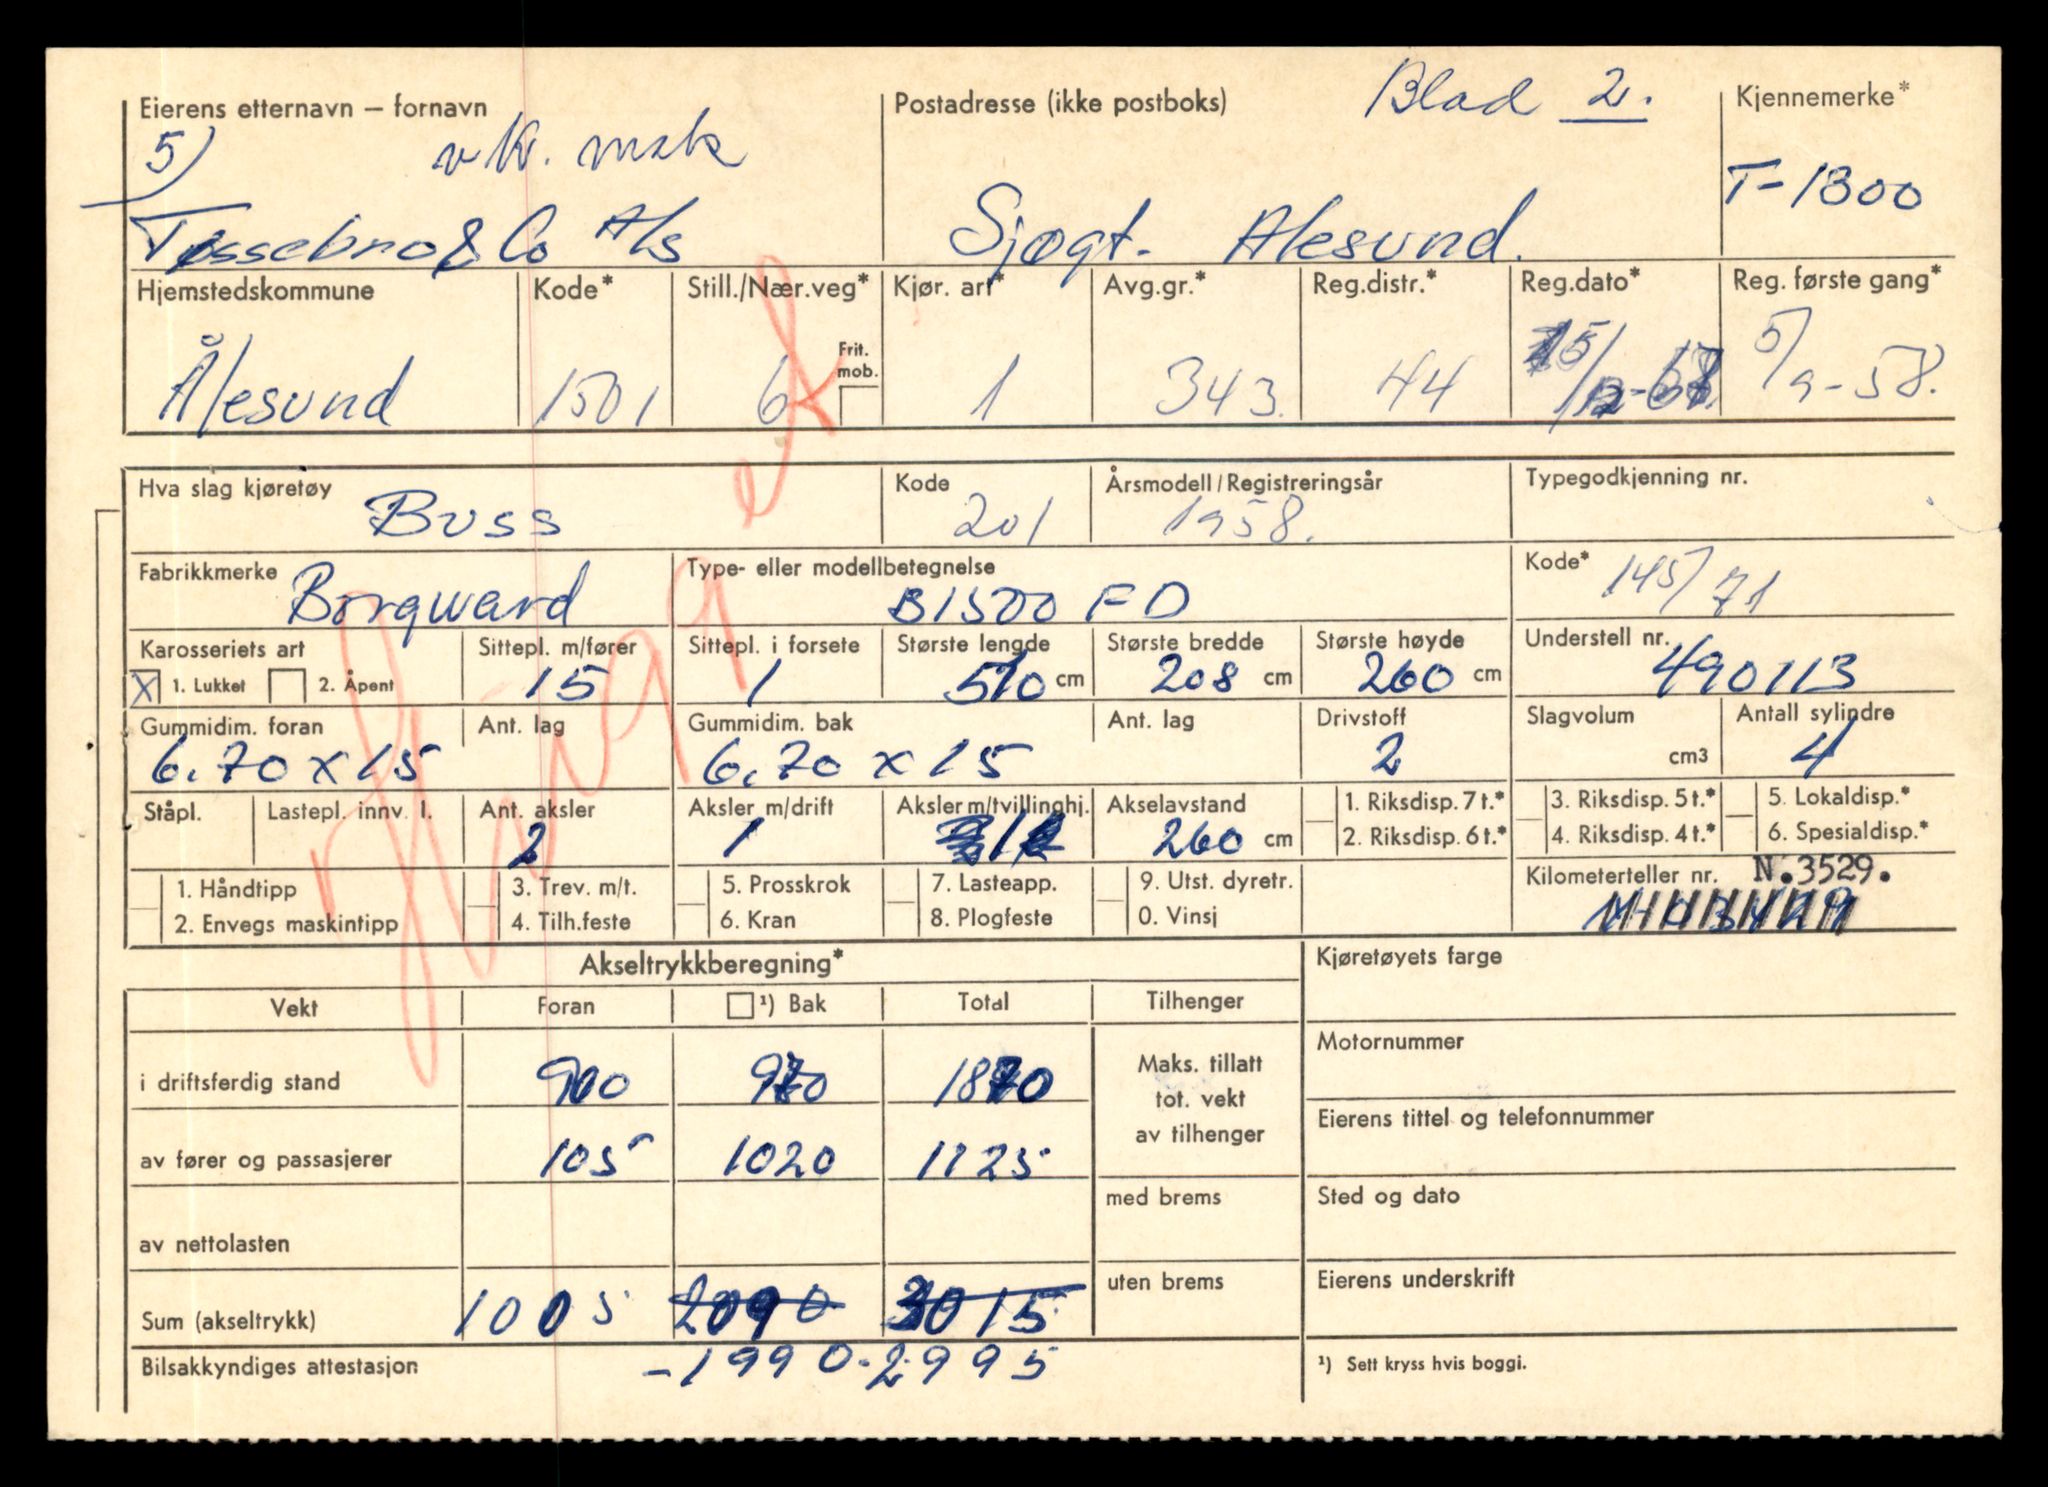 Blad 2.
Eierens etternavn – fornavn
Postadresse (ikke postboks)
Kjennemerke*
5)
Tøssebro & Co A/s
Sjøgt. Alesund.
T-1300
Hjemstedskommune
Kode*
Still./Nær.veg*
Kjør. art*
Avg.gr.*
Reg.distr.*
Reg.dato*
Reg. første gang*
Frit. mob.
Ålesund
1501
6
1
343.
44
5/9-58.
Hva slag kjøretøy
Kode
Årsmodell/Registreringsår
Typegodkjenning nr.
Buss
201
1958.
Fabrikkmerke
Type- eller modellbetegnelse
Kode*
Borgward
B1500 FD
145/71
Karosseriets art
Sittepl. m/fører
Sittepl. i forsete
Største lengde
Største bredde
Største høyde
Understell nr.
X 1. Lukket
2. Åpent
15
1
510 cm
208 cm
260 cm
490113
Gummidim. foran
Ant. lag
Gummidim. bak
Ant. lag
Drivstoff
Slagvolum
Antall sylindre
6.70 x 15
6.70 x 15
2
cm3
4
Ståpl.
Lastepl. innv. l.
Ant. aksler
Aksler m/drift
Aksler m/tvillinghj.
Akselavstand
1. Riksdisp. 7 t.*
3. Riksdisp. 5 t.*
5. Lokaldisp.*
2
1
260 cm
2. Riksdisp. 6 t.*
4. Riksdisp. 4 t.*
6. Spesialdisp.*
1. Håndtipp
3. Trev. m/t.
5. Prosskrok
7. Lasteapp.
9. Utst. dyretr.
Kilometerteller nr.
N.3529.
2. Envegs maskintipp
4. Tilh.feste
6. Kran
8. Plogfeste
0. Vinsj
Akseltrykkberegning*
Kjøretøyets farge
Vekt
Foran
¹) Bak
Total
Tilhenger
i driftsferdig stand
900
970
1870
Maks. tillatt
tot. vekt
av tilhenger
Motornummer
av fører og passasjerer
105
1020
1125
Eierens tittel og telefonnummer
med brems
Sted og dato
av nettolasten
uten brems
Eierens underskrift
Sum (akseltrykk)
1005
2090
3015
Bilsakkyndiges attestasjon
-1990-2995
¹) Sett kryss hvis boggi.